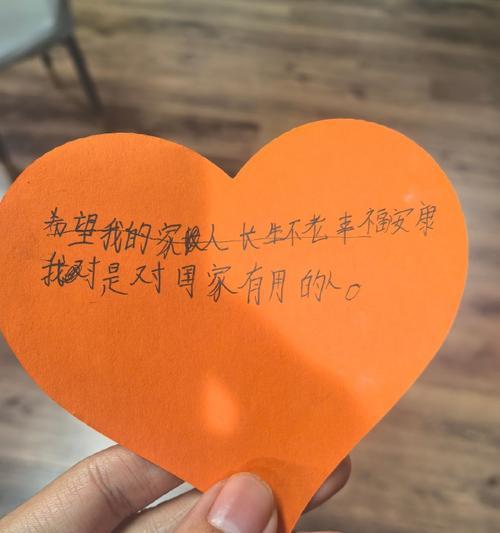 希望我的家人长生不老幸福安康
我是对国家有用的人。